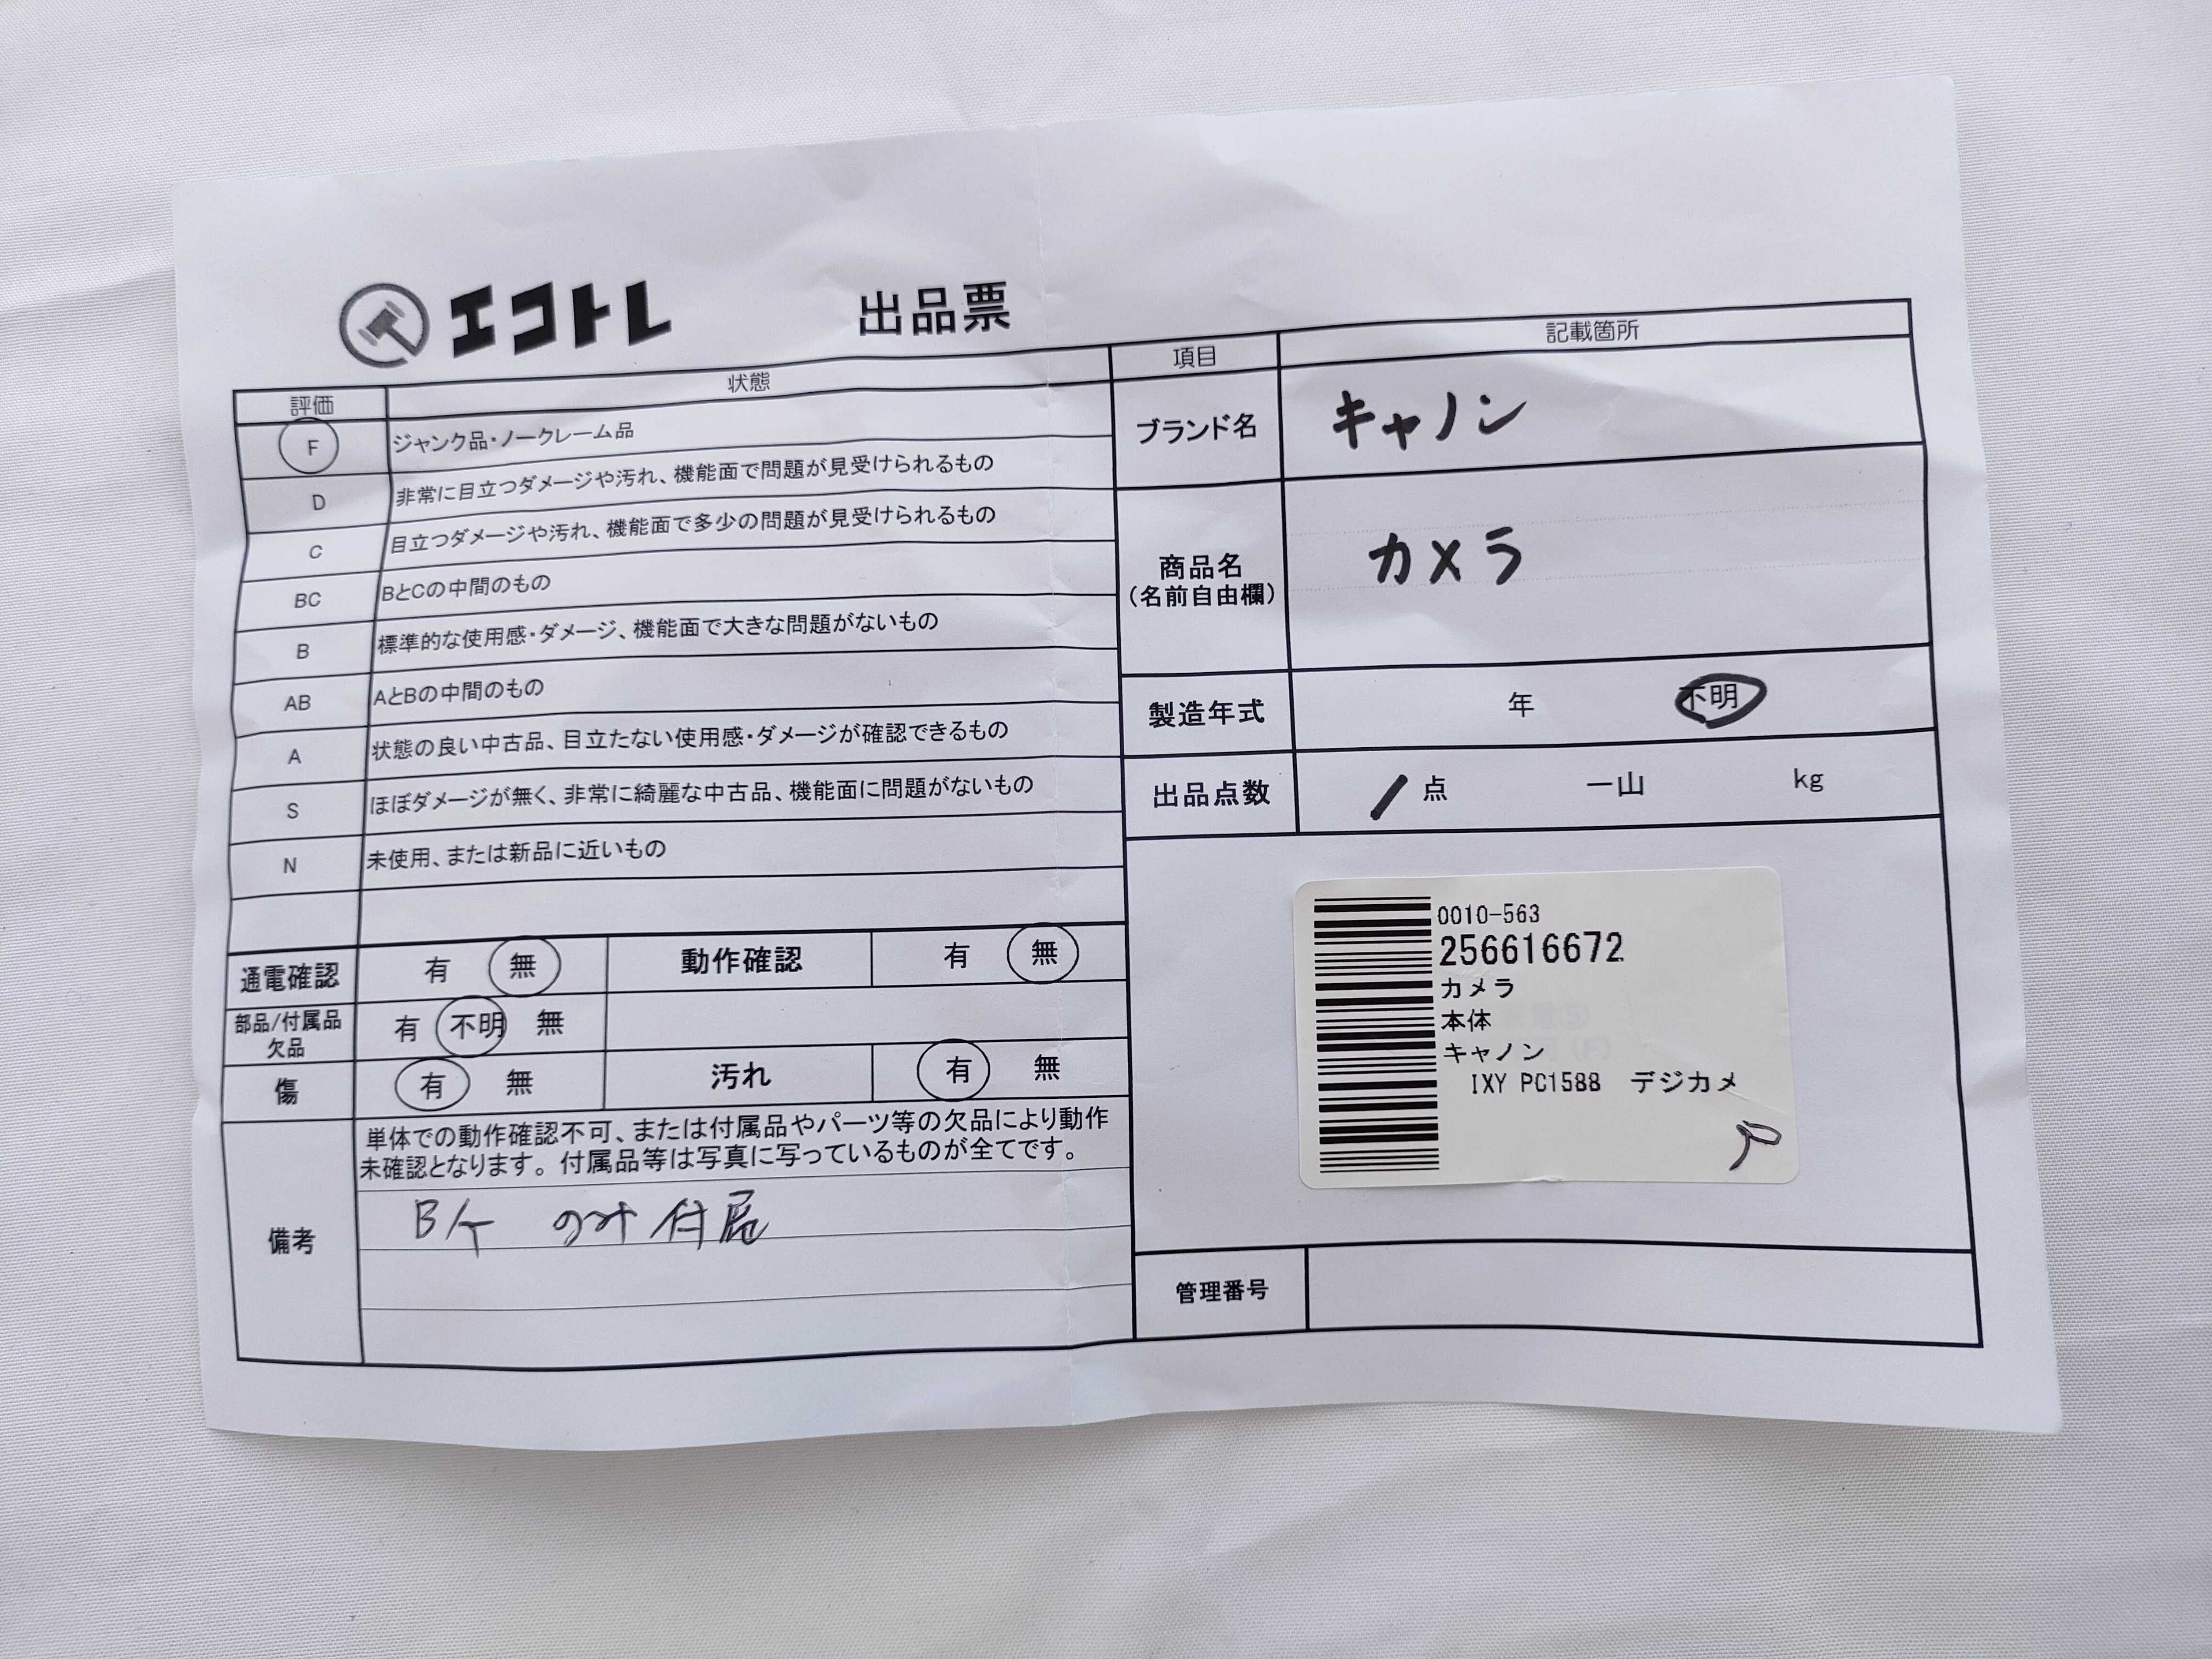 エコトレ
出品票
評価 状態
F ジャンク品・ノークレーム品
D 非常に目立つダメージや汚れ、機能面で問題が見受けられるもの
C 目立つダメージや汚れ、機能面で多少の問題が見受けられるもの
BC BとCの中間のもの
B 標準的な使用感・ダメージ、機能面で大きな問題がないもの
AB AとBの中間のもの
A 状態の良い中古品、目立たない使用感・ダメージが確認できるもの
S ほぼダメージが無く、非常に綺麗な中古品、機能面に問題がないもの
N 未使用、または新品に近いもの
通電確認 有 無 動作確認 有 無
部品/付属品
欠品 有 不明 無
傷 有 無 汚れ 有 無
備考
単体での動作確認不可、または付属品やパーツ等の欠品により動作
未確認となります。付属品等は写真に写っているものが全てです。
のみ付属
項目 記載箇所
ブランド名 キャノン
商品名
(名前自由欄) カメラ
製造年式 年 不明
出品点数 / 点 一山 kg
0010-563
256616672
カメラ
本体
キャノン
IXY PC1588 デジカメ
管理番号